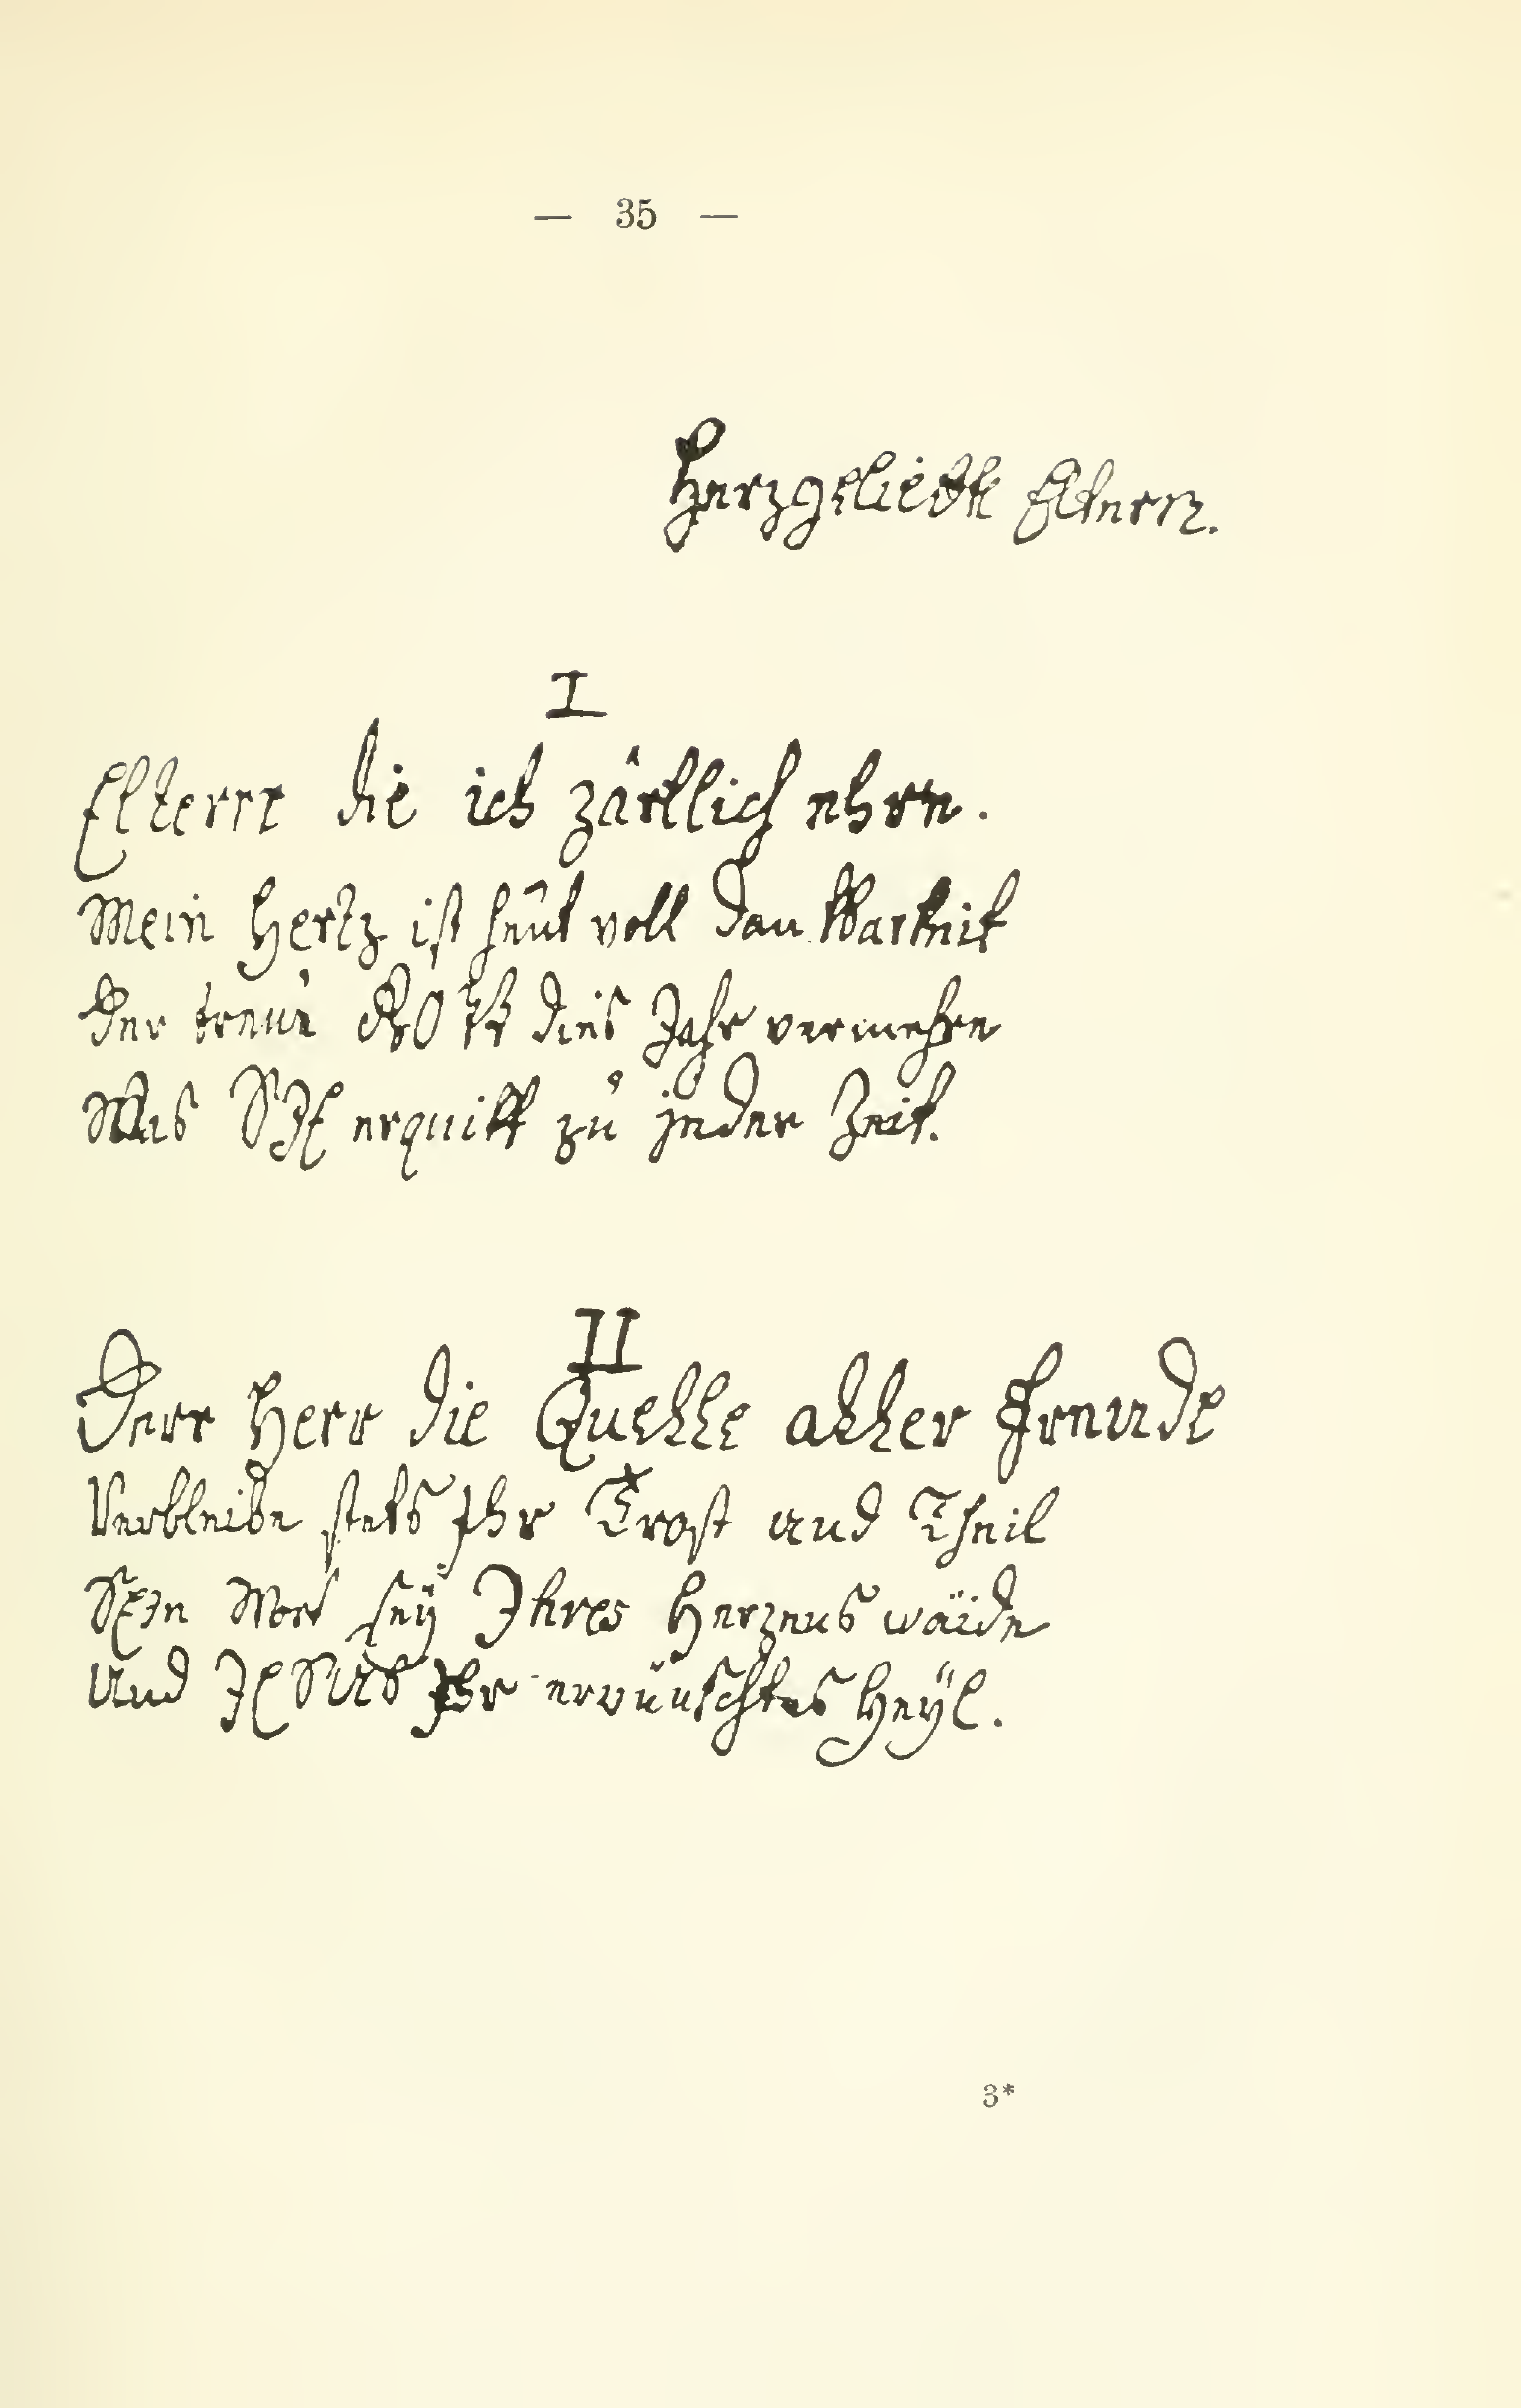 — 35 —
Herzgeliebte Eltern.
I
Eltern die ich zärtlich ehre.
Mein Hertz ist heut voll Danckbarkeit
Der treue GOtt dies Jahr vermehre
Was SIE erquickt zu jeder Zeit.
II
Derr Herr die Quelle aller Freude
Verbleibe stets Ihr Trost und Theil
SEIn Wort sey Ihres Herzens wäide
Und JESUS Ihr erwünschtes Heyl.
3*